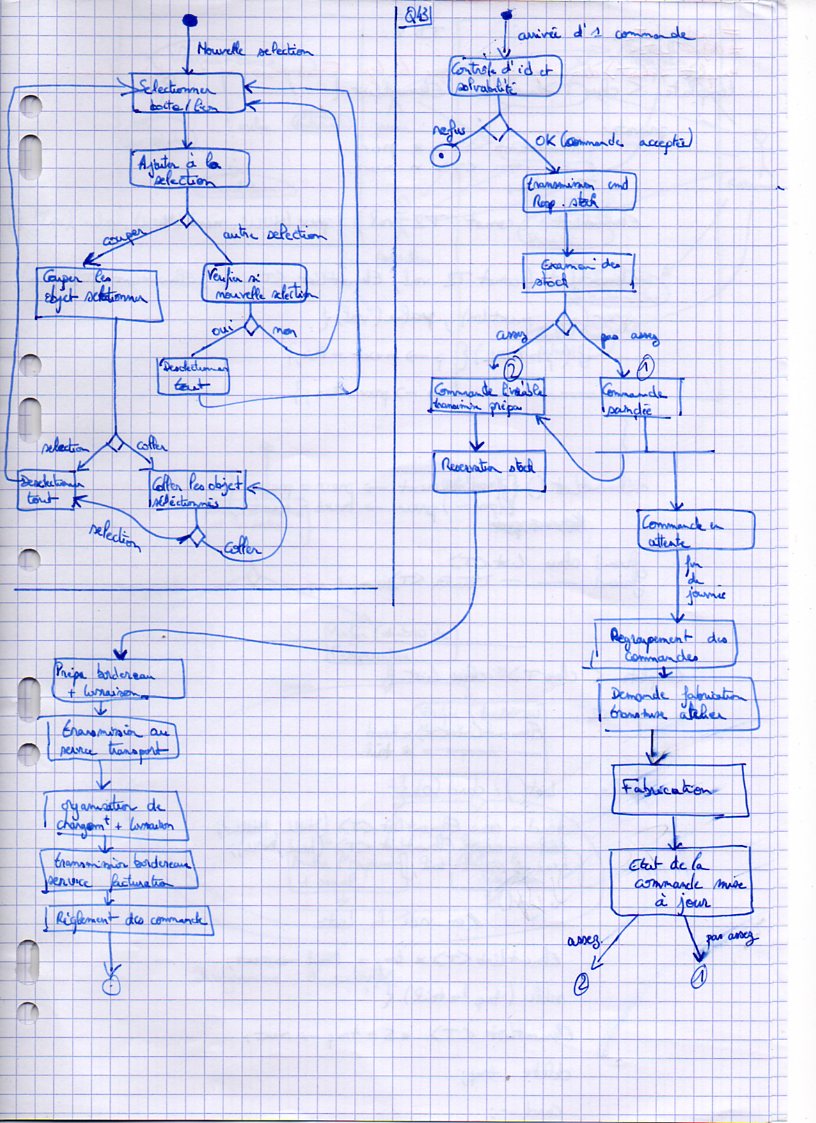 Nouvelle selection
Selectionner
boite/lien
Ajouter à la
selection
couper
autre selection
Couper les
objet selctionner
Verifier si
nouvelle selection
oui
non
Deselectionner
tout
selection
coller
Deselectionner
tout
Coller les objet
séléctionnés
selection
coller
Q43
arrivée d'1 commande
Contrôle d'id et
solvabilité
refus
OK (commande acceptée)
transmission cmd
Resp. stock
Examen des
stock
assez
pas assez
2
1
Commande livrable
transmise prépa
Commande
scindée
Reservation stock
Commande en
attente
fin
de
journée
Regroupement des
commandes
Demande fabrication
transmise atelier
Fabrication
Etat de la
commande mise
à jour
assez
pas assez
2
1
Prépa bordereau
+ livraison
transmission au
service transport
organisation de
chargemt + livraison
transmission bordereau
service facturation
Réglement des commande